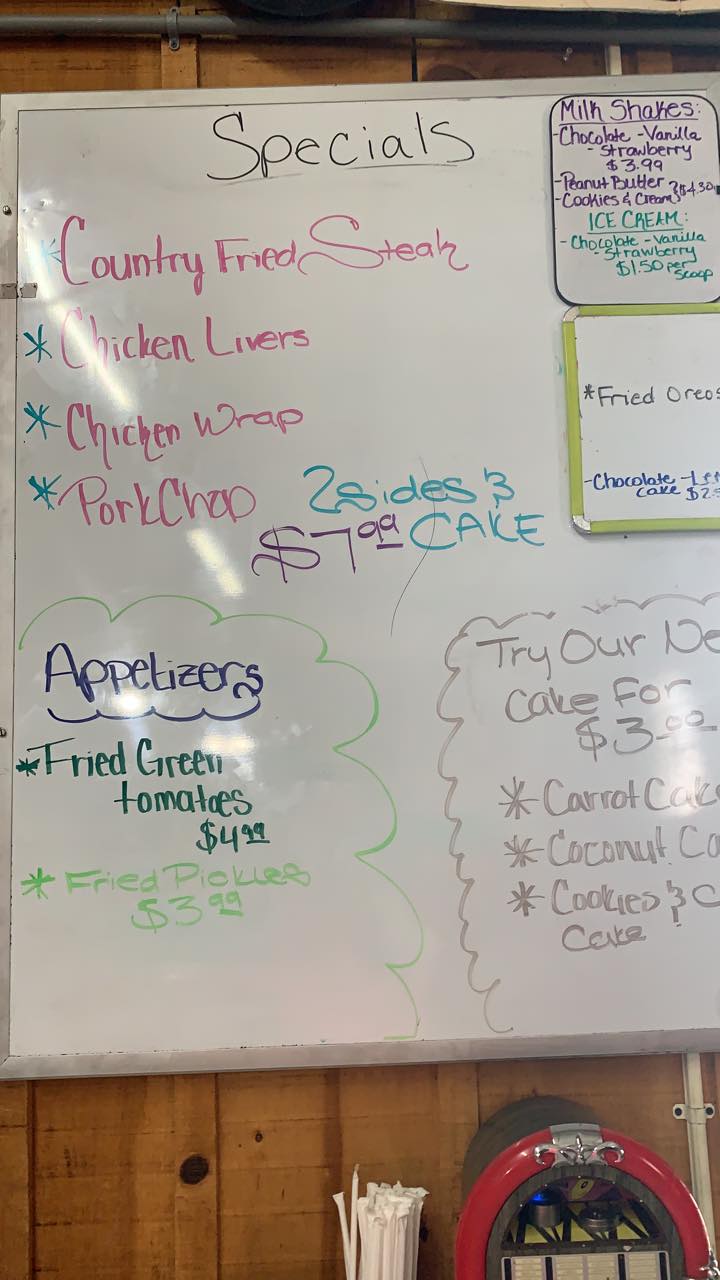 Specials
*Country Fried Steak
* Chicken Livers
* Chicken Wrap
* Pork Chop
2 sides &
$7.99 CAKE
Appetizers
*Fried Green
tomatoes
$4.99
* Fried Pickles
$3.99
Milk Shakes:
-Chocolate -Vanilla
-Strawberry
$3.99
-Peanut Butter
-Cookies & Cream $4.30
ICE CREAM:
-Chocolate -Vanilla
-Strawberry
$1.50 per
Scoop
*Fried Oreos
-Chocolate
cake
Try Our
Cake For
$3.99
* Carrot Cake
* Coconut
* Cookies &
Cake